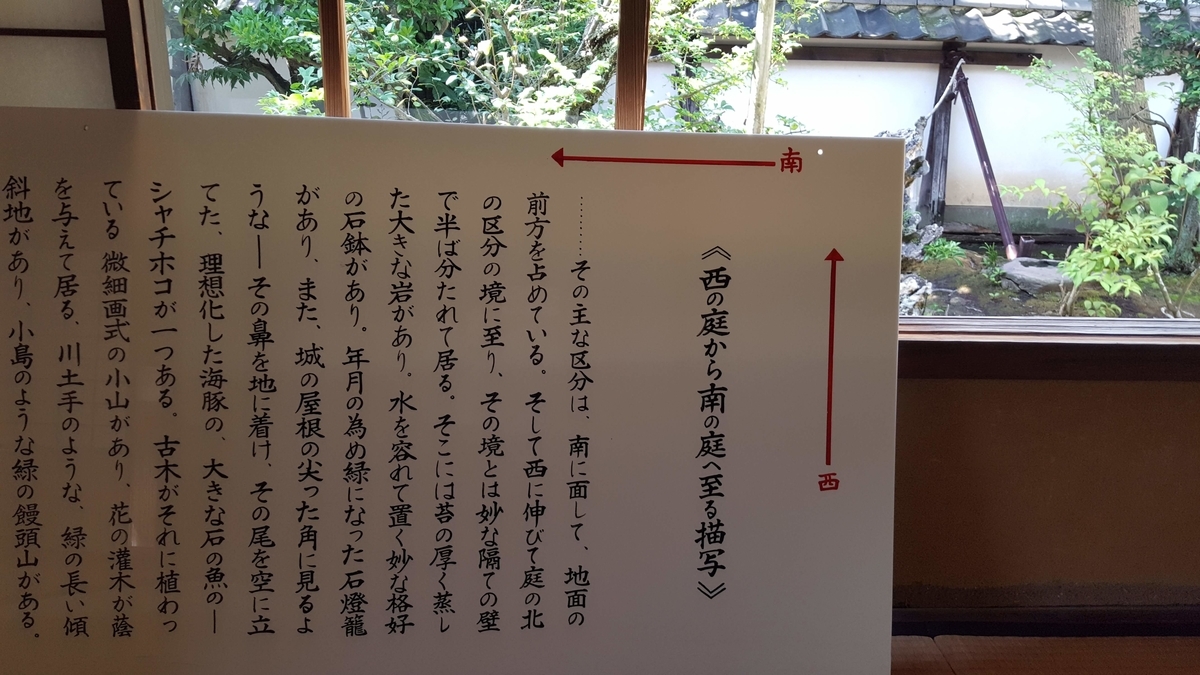 南
西
《西の庭から南の庭へ至る描写》
………その主な区分は、南に面して、地面の
前方を占めている。そして西に伸びて庭の北
の区分の境に至り、その境とは妙な隔ての壁
で半ば分たれて居る。そこには苔の厚く蒸し
た大きな岩があり。水を容れて置く妙な格好
の石鉢があり。年月の為め緑になった石燈籠
があり、また、城の屋根の尖った角に見るよ
うな―その鼻を地に着け、その尾を空に立
てた、理想化した海豚の、大きな石の魚の―
シャチホコが一つある。古木がそれに植わっ
ている 微細画式の小山があり、花の灌木が蔭
を与えて居る、川土手のような、緑の長い傾
斜地があり、小島のような緑の饅頭山がある。